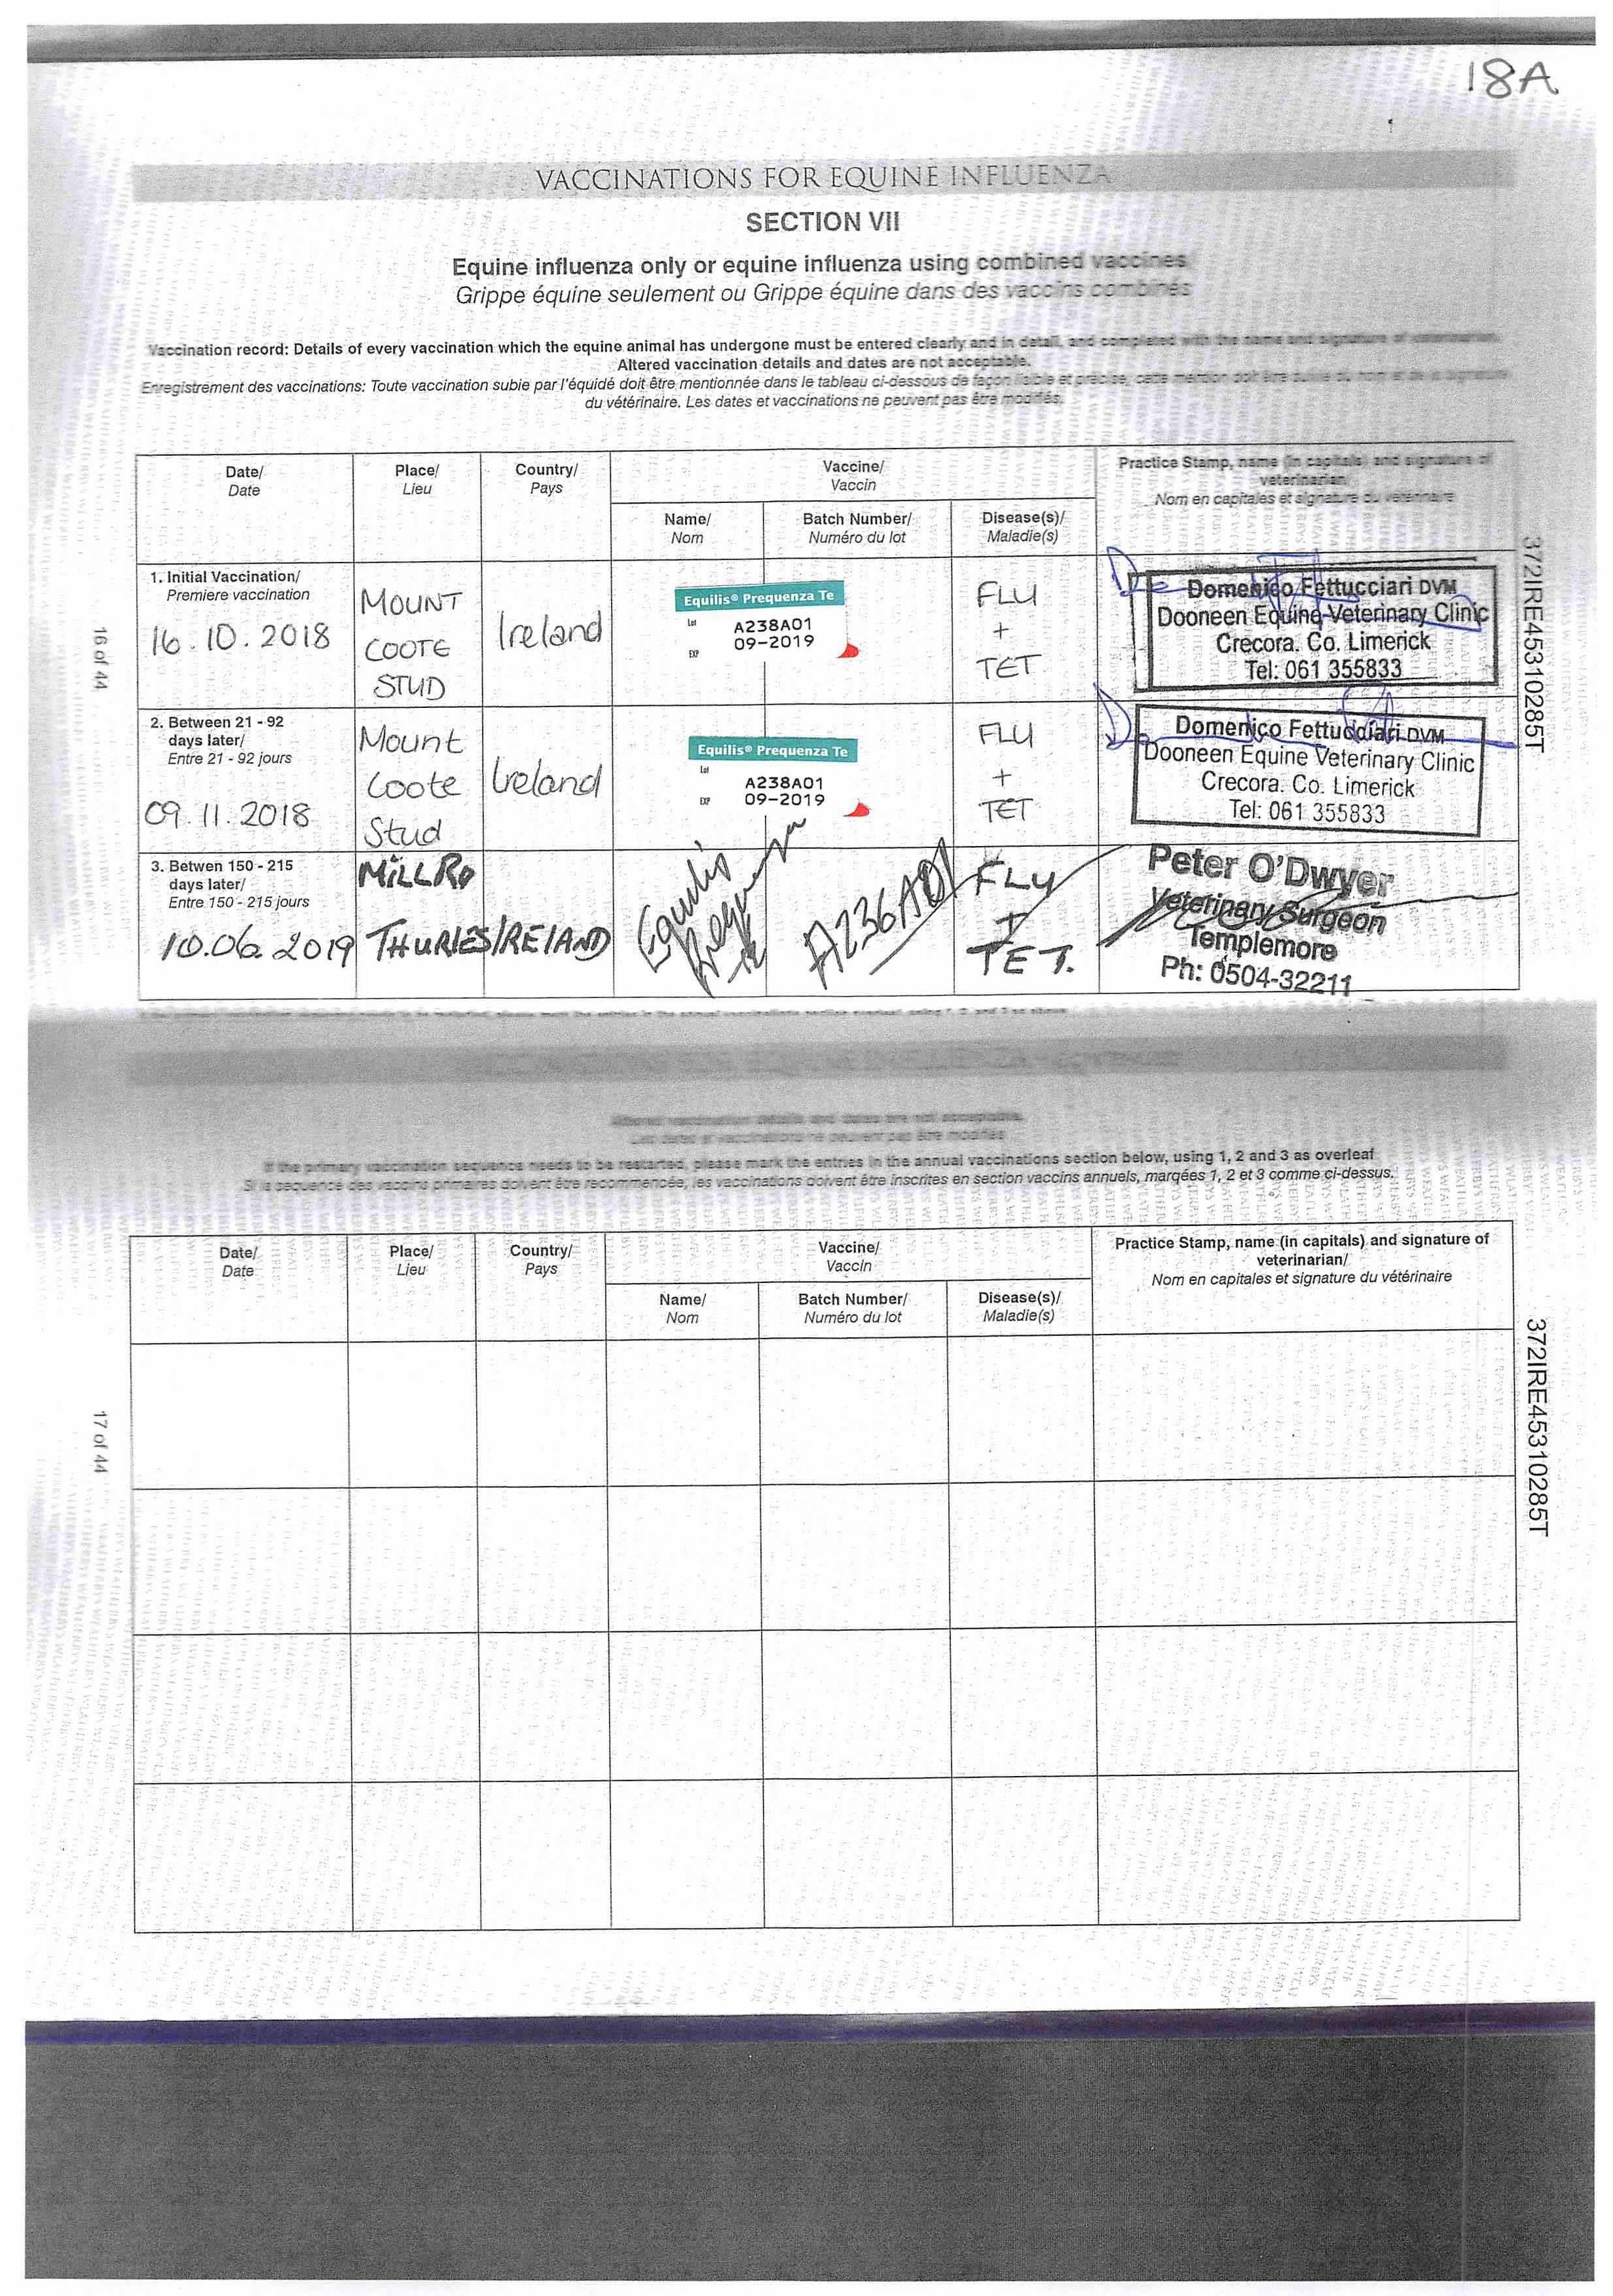 18A
VACCINATIONS FOR EQUINE INFLUENZA
SECTION VII
Equine influenza only or equine influenza using combined vaccines
Grippe équine seulement ou Grippe équine dans des vaccins combinés
Vaccination record: Details of every vaccination which the equine animal has undergone must be entered clearly and in detail, and completed with the name and signature of veterinarian.
Altered vaccination details and dates are not acceptable.
Enregistrement des vaccinations: Toute vaccination subie par l'équidé doit être mentionnée dans le tableau ci-dessous de façon lisible et précise, cette mention doit être suivie du nom et de la signature
du vétérinaire. Les dates et vaccinations ne peuvent pas être modifiés.
Date/
Date
Place/
Lieu
Country/
Pays
Vaccine/
Vaccin
Name/
Nom
Batch Number/
Numéro du lot
Disease(s)/
Maladie(s)
Practice Stamp, name (in capitals) and signature of
veterinarian/
Nom en capitales et signature du vétérinaire
1. Initial Vaccination/
Premiere vaccination
16.10.2018
MOUNT
COOTE
STUD
Ireland
Equilis® Prequenza Te
Lot A238A01
EXP 09-2019
FLU
+
TET
Domenico Fettucciari DVM
Dooneen Equine Veterinary Clinic
Crecora. Co. Limerick
Tel: 061 355833
2. Between 21 - 92
days later/
Entre 21 - 92 jours
09.11.2018
Mount
Coote
Stud
Ireland
Equilis® Prequenza Te
Lot A238A01
EXP 09-2019
FLU
+
TET
Domenico Fettucciari DVM
Dooneen Equine Veterinary Clinic
Crecora. Co. Limerick
Tel: 061 355833
3. Betwen 150 - 215
days later/
Entre 150 - 215 jours
10.06.2019
MILL RD
THURLES
IRELAND
Equilis
Prequenza
Te
A236A01
FLU
+
TET.
Peter O'Dwyer
Veterinary Surgeon
Templemore
Ph: 0504-32211
16 of 44
372IRE45310285T
Altered vaccination details and dates are not acceptable.
Les dates et vaccinations ne peuvent pas être modifiés
If the primary vaccination sequence needs to be restarted, please mark the entries in the annual vaccinations section below, using 1, 2 and 3 as overleaf
Si la sequence des vaccins primaires doivent être recommencée, les vaccinations doivent être inscrites en section vaccins annuels, marqées 1, 2 et 3 comme ci-dessus.
Date/
Date
Place/
Lieu
Country/
Pays
Vaccine/
Vaccin
Name/
Nom
Batch Number/
Numéro du lot
Disease(s)/
Maladie(s)
Practice Stamp, name (in capitals) and signature of
veterinarian/
Nom en capitales et signature du vétérinaire
17 of 44
372IRE45310285T